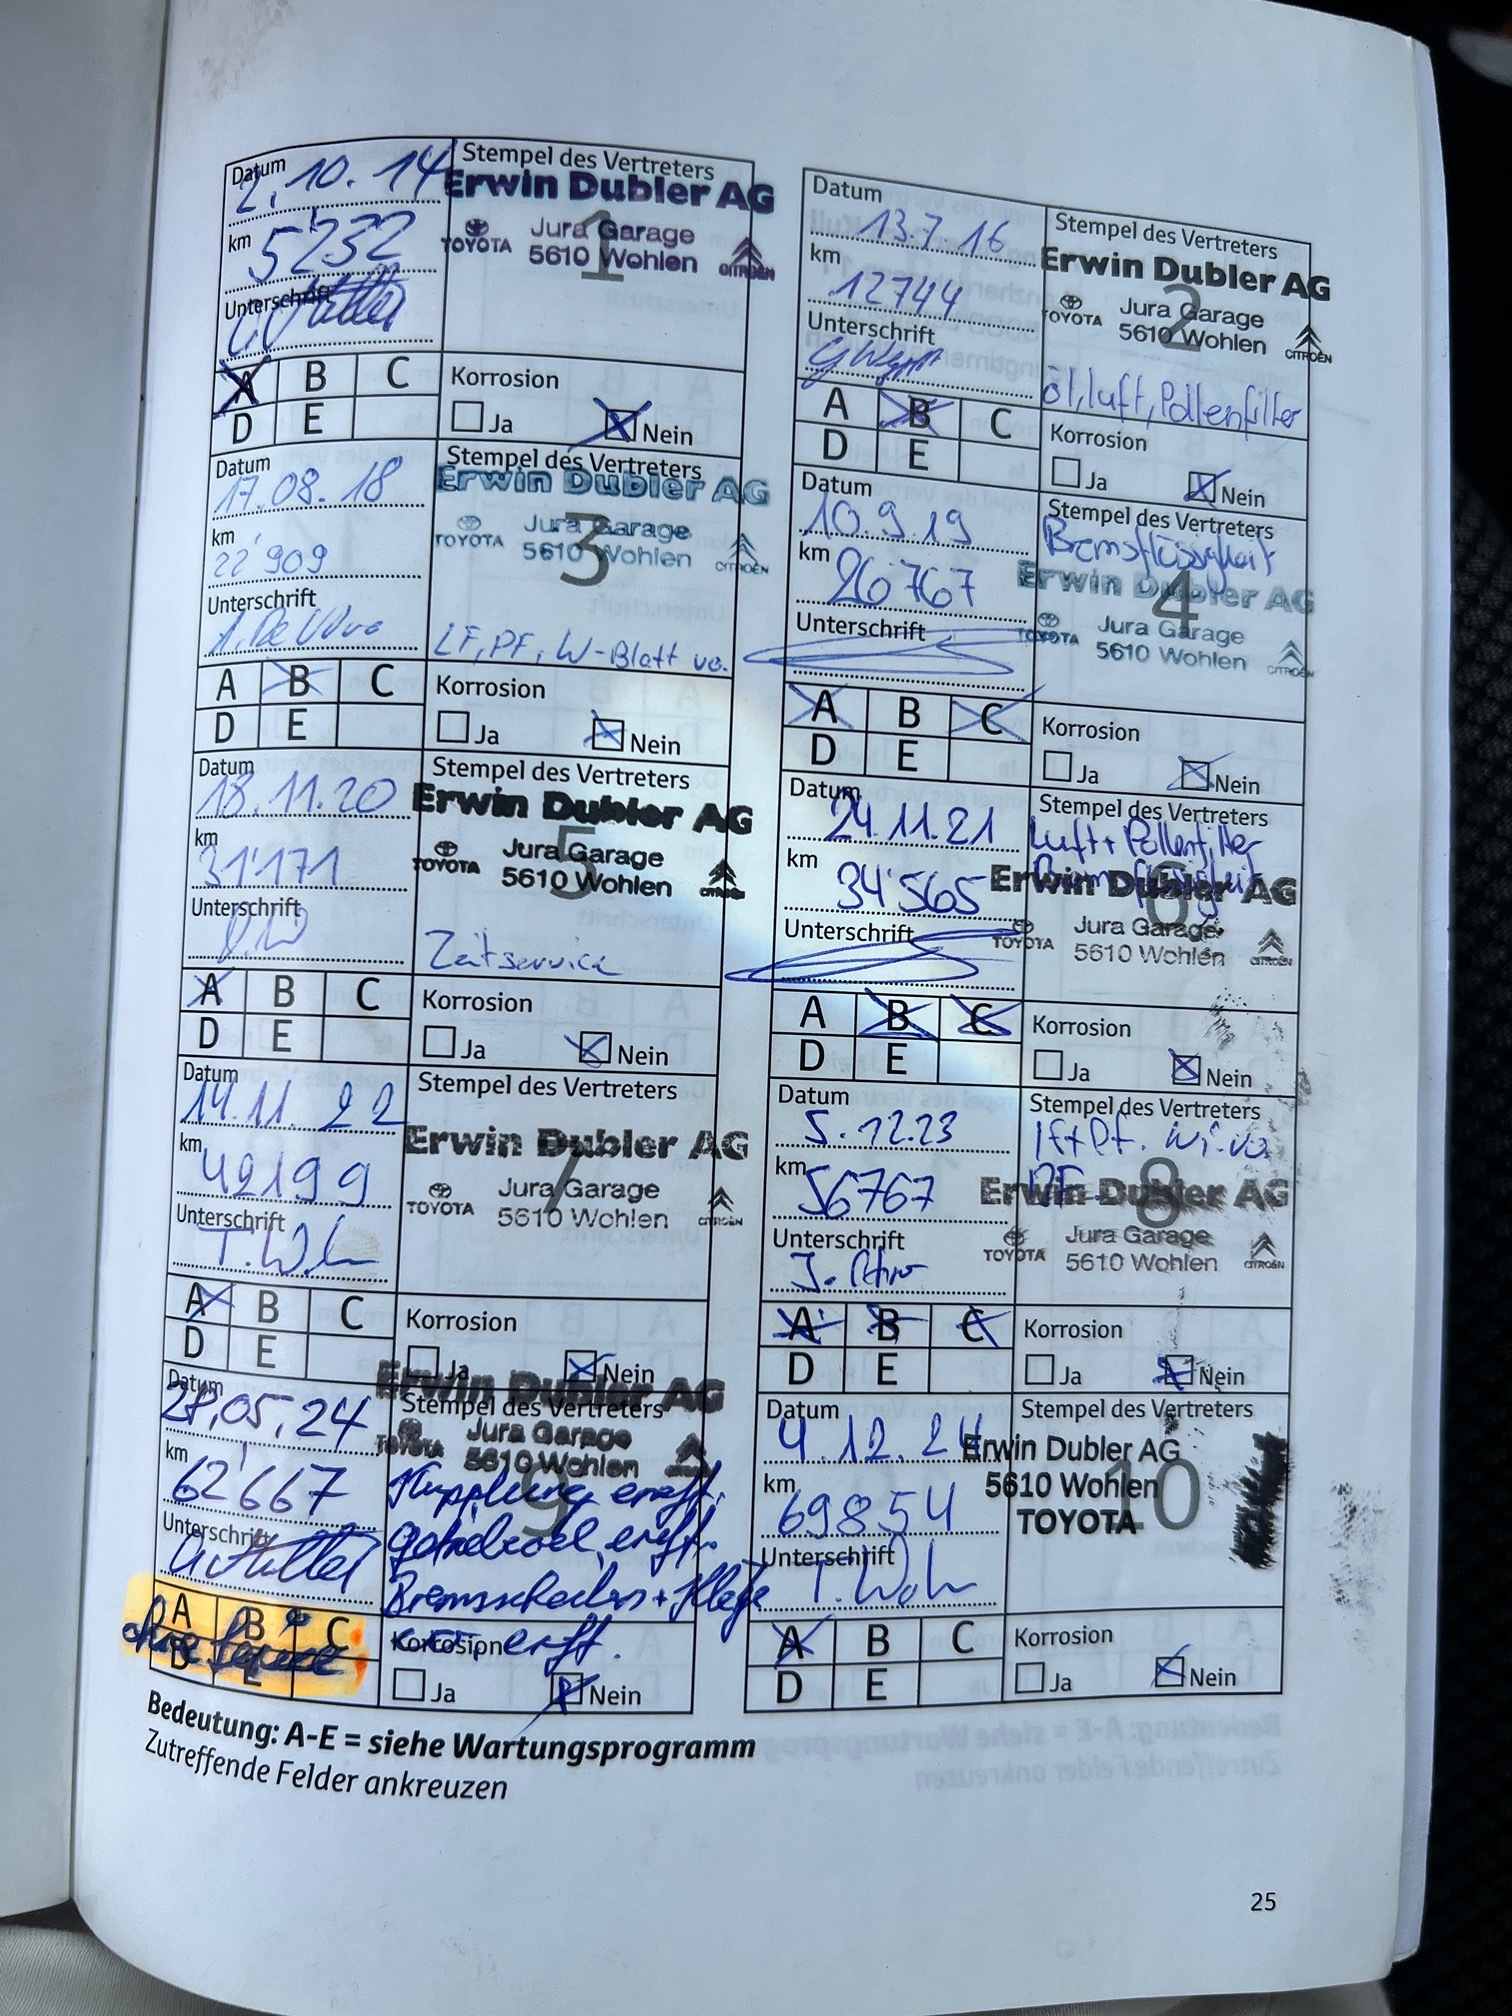 Datum 2.10.14
km 5'232
Unterschrift
Stempel des Vertreters
Erwin Dubler AG
TOYOTA Jura Garage CITROËN
5610 Wohlen
1
A B C
D E
Korrosion
Ja Nein
Datum 13.7.16
km 12744
Unterschrift
Stempel des Vertreters
Erwin Dubler AG
TOYOTA Jura Garage CITROËN
5610 Wohlen
2
öl, luft, Pollenfilter
A B C
D E
Korrosion
Ja Nein
Datum 17.08.18
km 22'909
Unterschrift
Stempel des Vertreters
Erwin Dubler AG
TOYOTA Jura Garage CITROËN
5610 Wohlen
3
LF, PF, W-Blatt vo.
A B C
D E
Korrosion
Ja Nein
Datum 10.9.19
km 26'767
Unterschrift
Stempel des Vertreters
Bremsflüssigkeit
Erwin Dubler AG
TOYOTA Jura Garage CITROËN
5610 Wohlen
4
A B C
D E
Korrosion
Ja Nein
Datum 18.11.20
km 31'171
Unterschrift
Stempel des Vertreters
Erwin Dubler AG
TOYOTA Jura Garage CITROËN
5610 Wohlen
5
Zeitservice
A B C
D E
Korrosion
Ja Nein
Datum 24.11.21
km 34'565
Unterschrift
Stempel des Vertreters
Luft + Pollenfilter
Bremsflüssigkeit
Erwin Dubler AG
TOYOTA Jura Garage CITROËN
5610 Wohlen
6
A B C
D E
Korrosion
Ja Nein
Datum 14.11.22
km 42199
Unterschrift
Stempel des Vertreters
Erwin Dubler AG
TOYOTA Jura Garage CITROËN
5610 Wohlen
7
A B C
D E
Korrosion
Ja Nein
Datum 5.12.23
km 56767
Unterschrift
Stempel des Vertreters
lf + Pf. Wi. vo
BF
Erwin Dubler AG
TOYOTA Jura Garage CITROËN
5610 Wohlen
8
A B C
D E
Korrosion
Ja Nein
Datum 28.05.24
km 62'667
Unterschrift
Erwin Dubler AG
Stempel des Vertreters
TOYOTA Jura Garage CITROËN
5610 Wohlen
9
Kupplung ersetzt.
Bremsscheiben +
A B C
D E
ohne Service
Korrosion
Ja Nein
Datum 4.12.24
km 69854
Unterschrift
Stempel des Vertreters
Erwin Dubler AG
5610 Wohlen
TOYOTA
10
A B C
D E
Korrosion
Ja Nein
Bedeutung: A-E = siehe Wartungsprogramm
Zutreffende Felder ankreuzen
25